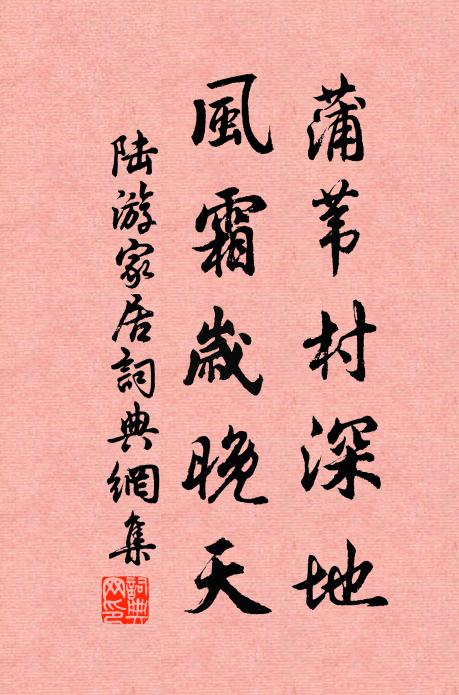 蒲苇村深地
風霜歲晚天
陆游家居詞典網集
詞典网印